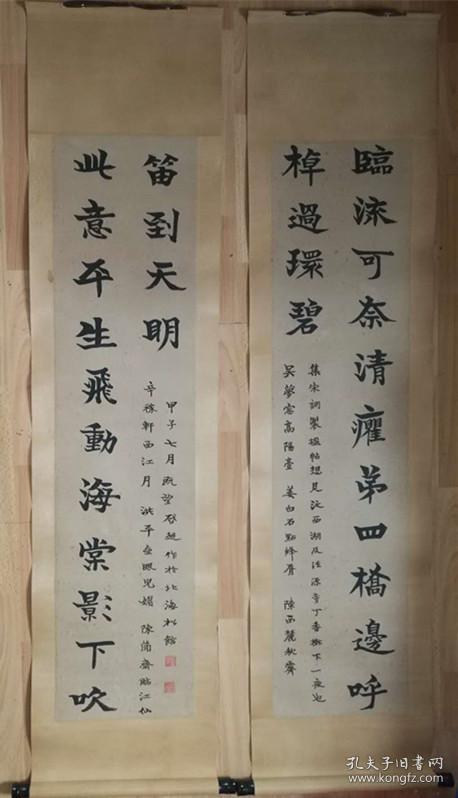 臨流可奈清癯弟四橋邊呼
棹過環碧
集宋詞製楹帖想見泛西湖及法源寺丁香樹下一夜也
吳夢窗高陽臺 姜白石點絳脣 陳西麓秋霽
此意平生飛動海棠影下吹
笛到天明
辛稼軒西江月 洪平壺眼兒媚 陳簡齋臨江仙
甲子七月既望啟超作於北海松館
孔夫子旧书网
www.kongfz.com